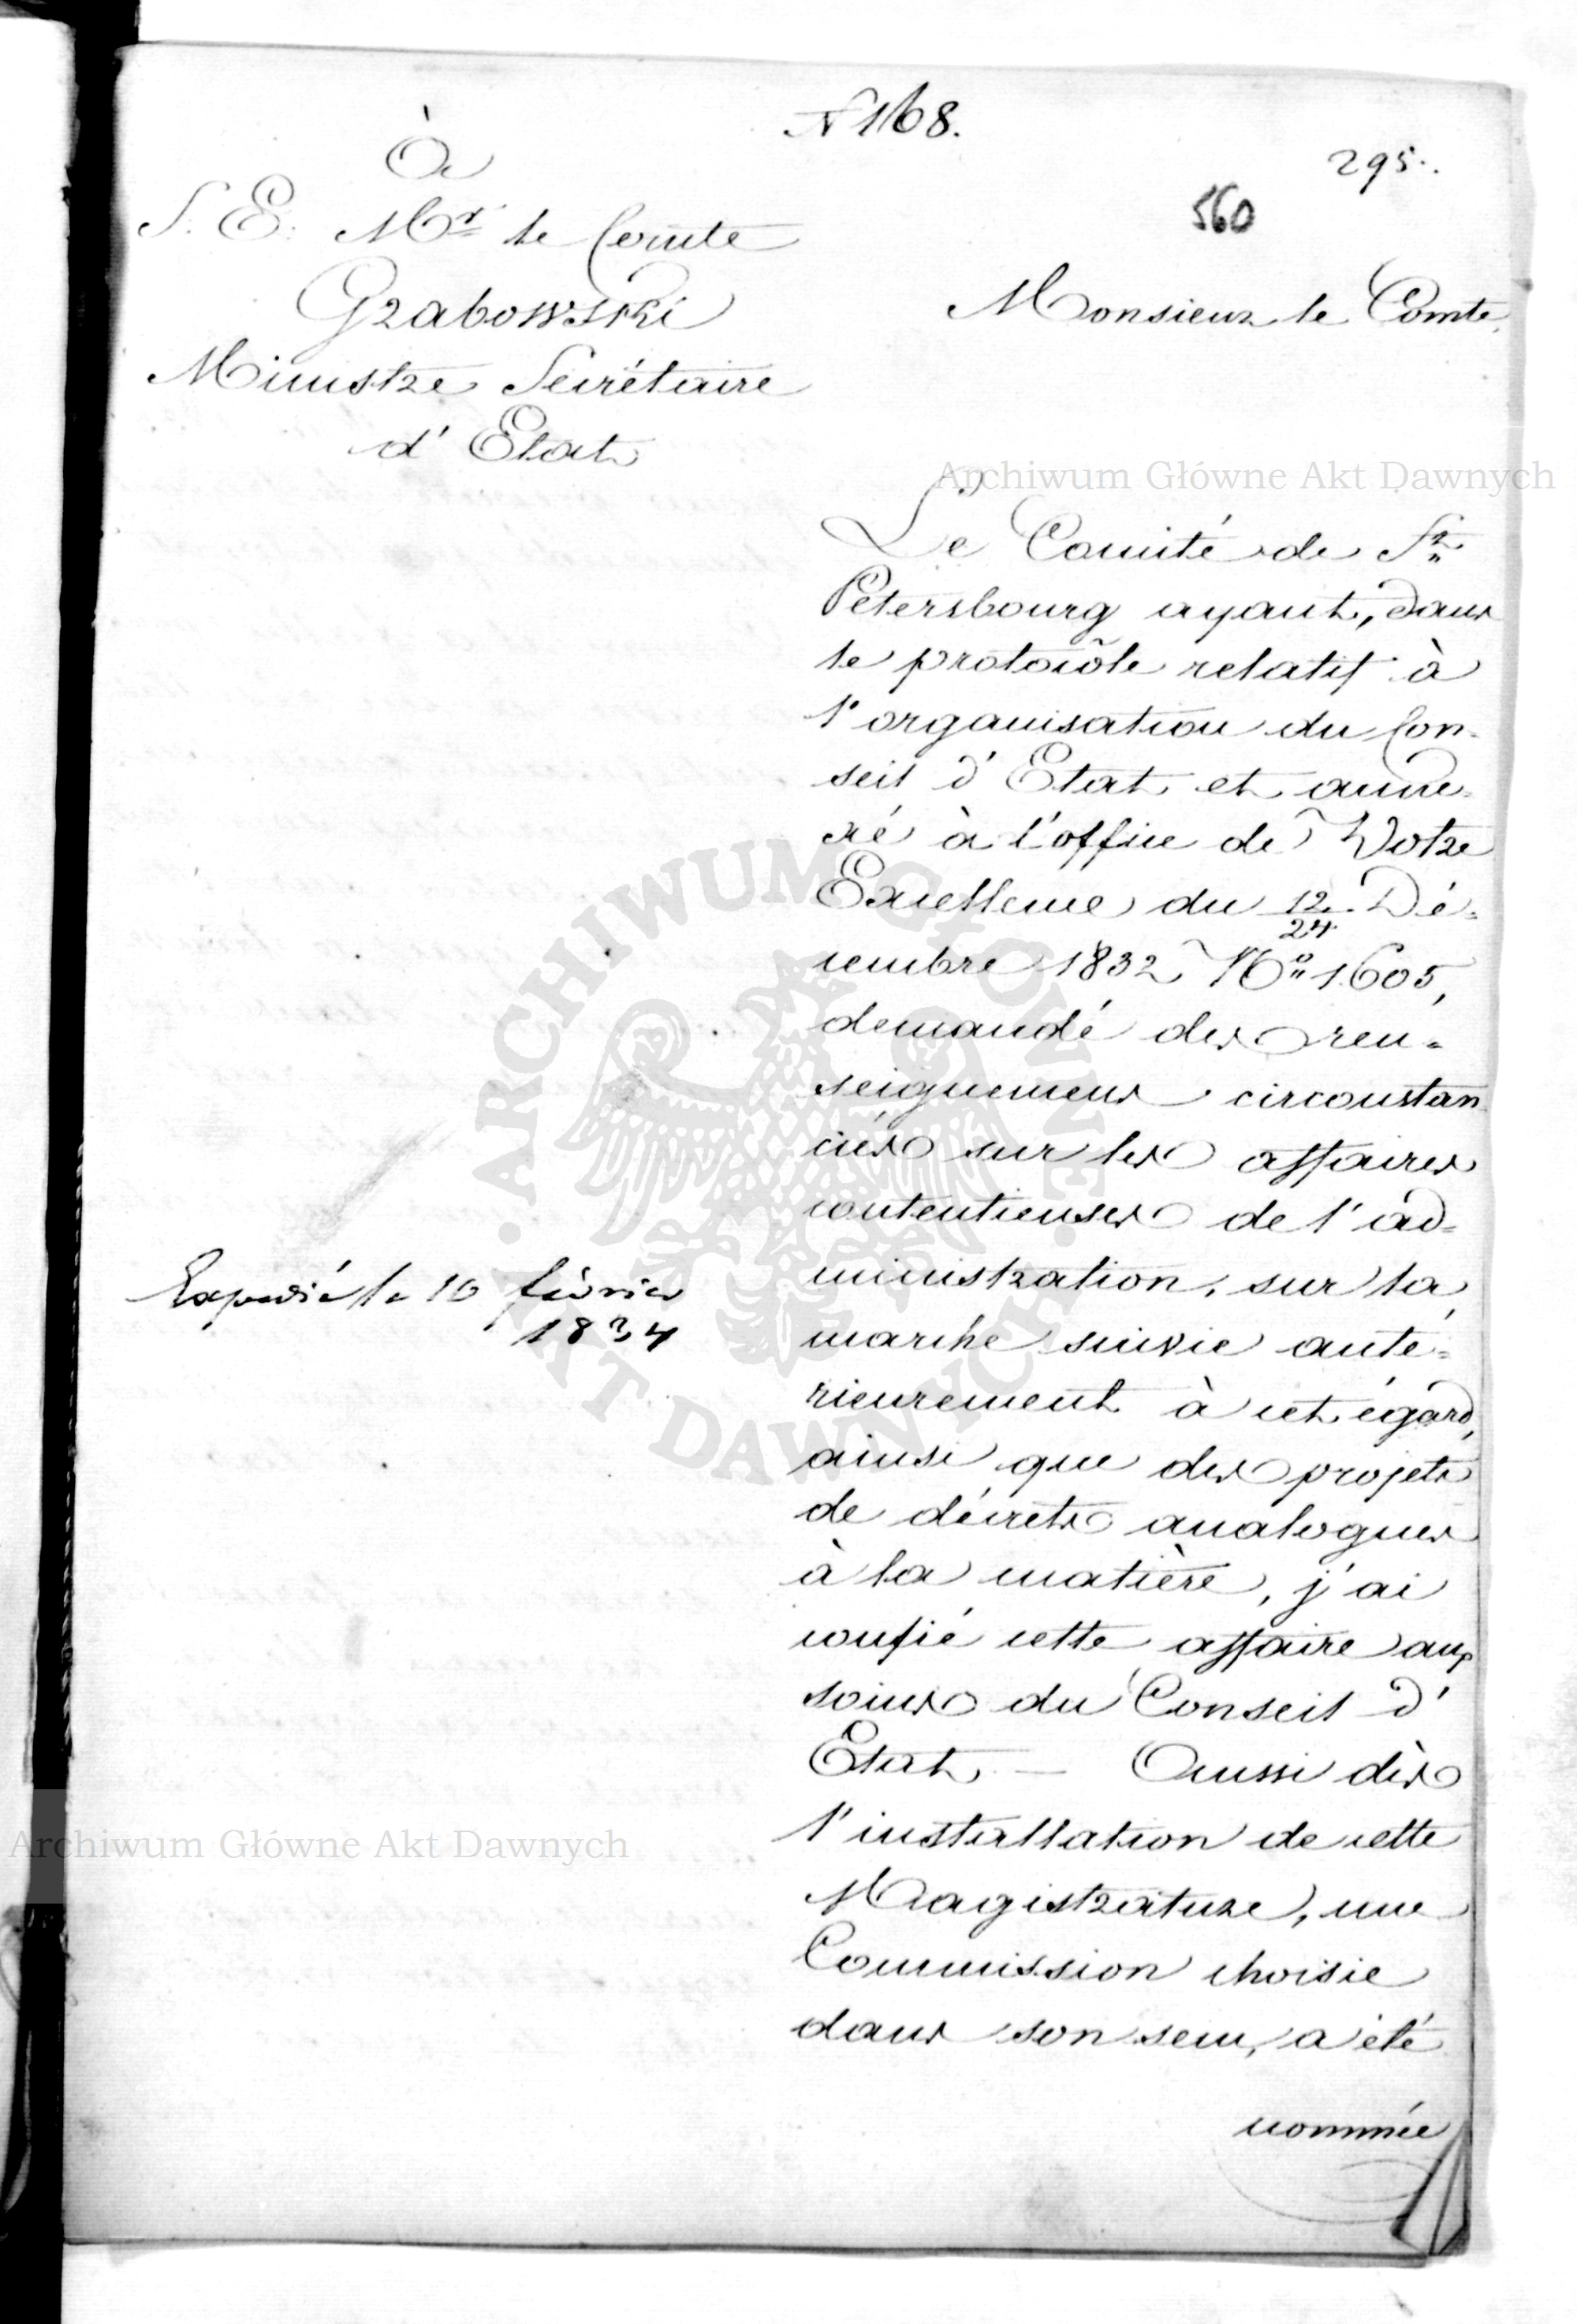 N 168.
295.
560
À
S. E. Mr le Comte
Grabowski
Ministre Secrétaire
d'Etat
Monsieur le Comte,
Archiwum Główne Akt Dawnych
Le Comité de St
Petersbourg ayant, dans
le protocôle relatif à
l'organisation du Con-
seil d'Etat et anne-
xé à l'office de Votre
Excellence du 12/24 Dé-
cembre 1832 No 1605,
demandé des ren-
seignemens circonstan
ciés sur les affaires
contentieuses de l'ad-
ministration, sur la
marche suivie anté-
rieurement à cet égard,
ainsi que des projets
de décrets analogues
à la matière, j'ai
confié cette affaire aux
soins du Conseil d'
Etat. — Aussi dès
l'installation de cette
Magistrature, une
Commission choisie
dans son sein, a été
nommée
Expedié le 10 février
1834
ARCHIWUM GŁÓWNE AKT DAWNYCH
Archiwum Główne Akt Dawnych